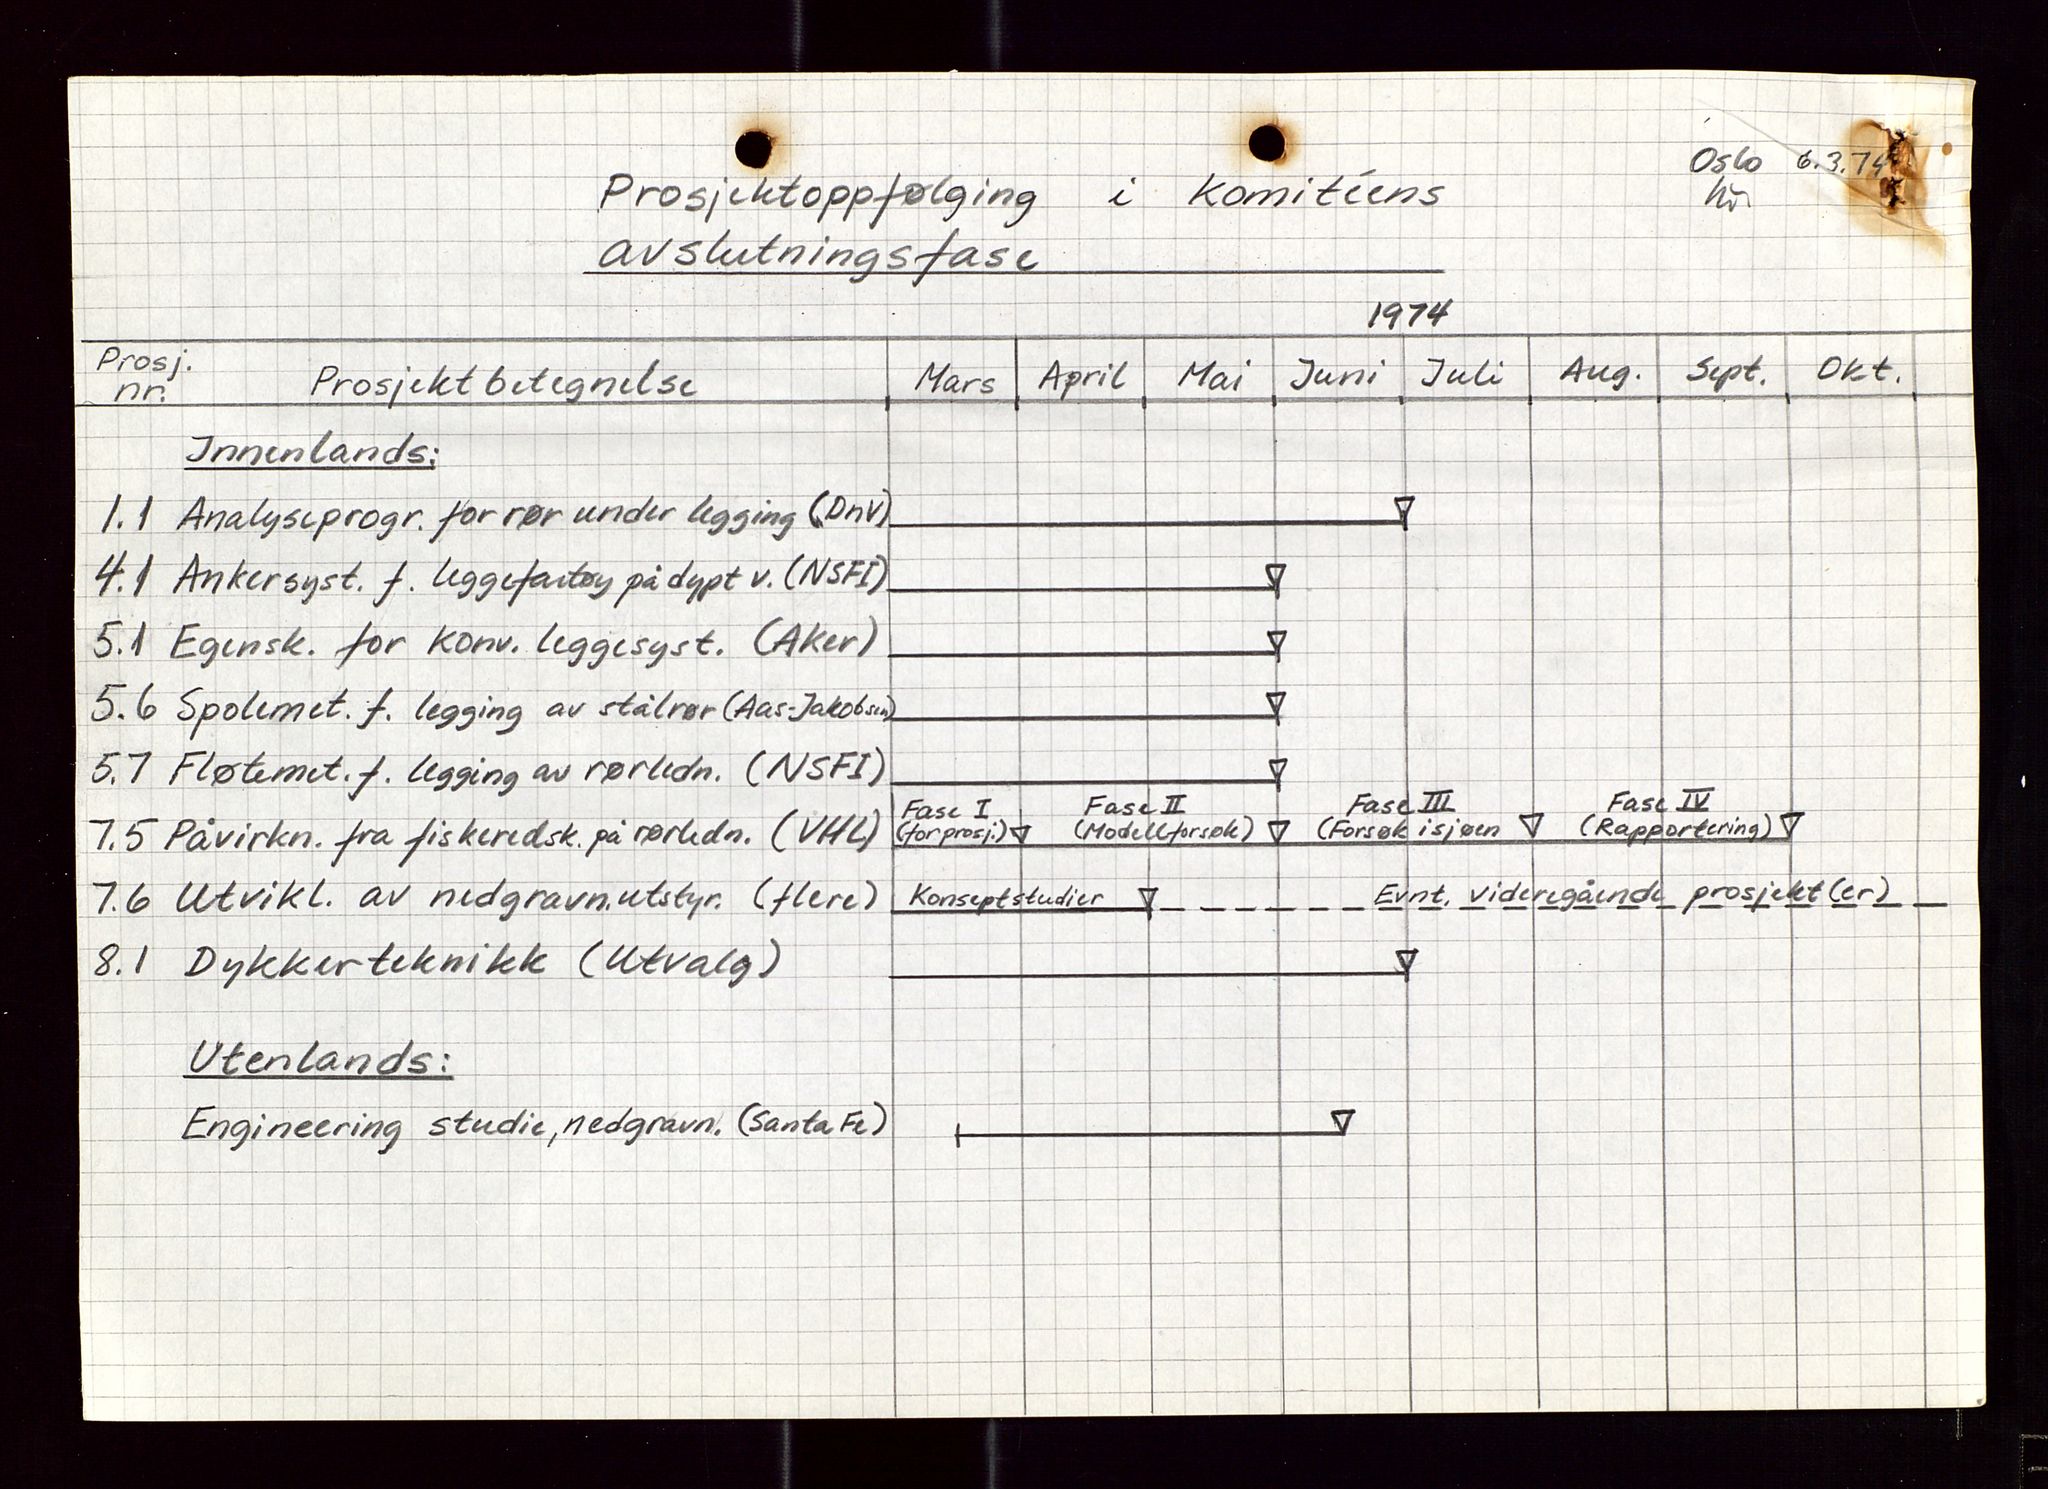 Oslo 6.3.74
Prosjektoppfølging i Komitéens
avslutningsfase
1974
Prosj. nr. Prosjektbetegnelse Mars April Mai Juni Juli Aug. Sept. Okt.
Innenlands:
1.1 Analyseprogr. for rør under legging (DnV)
4.1 Ankersyst. f. leggefartøy på dypt v. (NSFI)
5.1 Egensk. for konv. leggesyst. (Aker)
5.6 Spolemet. f. legging av stålrør (Aas-Jakobsen)
5.7 Fløtemet. f. legging av rørledn. (NSFI)
Fase I Fase II Fase III Fase IV
7.5 Påvirkn. fra fiskeredsk. på rørledn. (VHL) (forprosj.) (Modellforsøk) (Forsøk i sjøen (Rapportering)
7.6 Utvikl. av nedgravn.utstyr. (flere) Konseptstudier Evnt. videregående prosjekt(er)
8.1 Dykkerteknikk (Utvalg)
Utenlands:
Engineering studie, nedgravn. (Santa Fe)